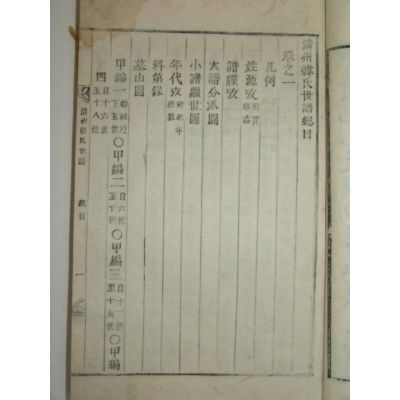 淸州韓氏世譜總目
卷之一
凡例
姓源攷
譜牒攷
大譜分派圖
小譜繼世圖
年代攷
科第錄
墓山圖
甲編一 下五世 〇甲編二 自六世至十世 〇甲編三 自十一世至十五世 〇甲編
四 自十六世至十八世
淸州韓氏世譜 總目 一